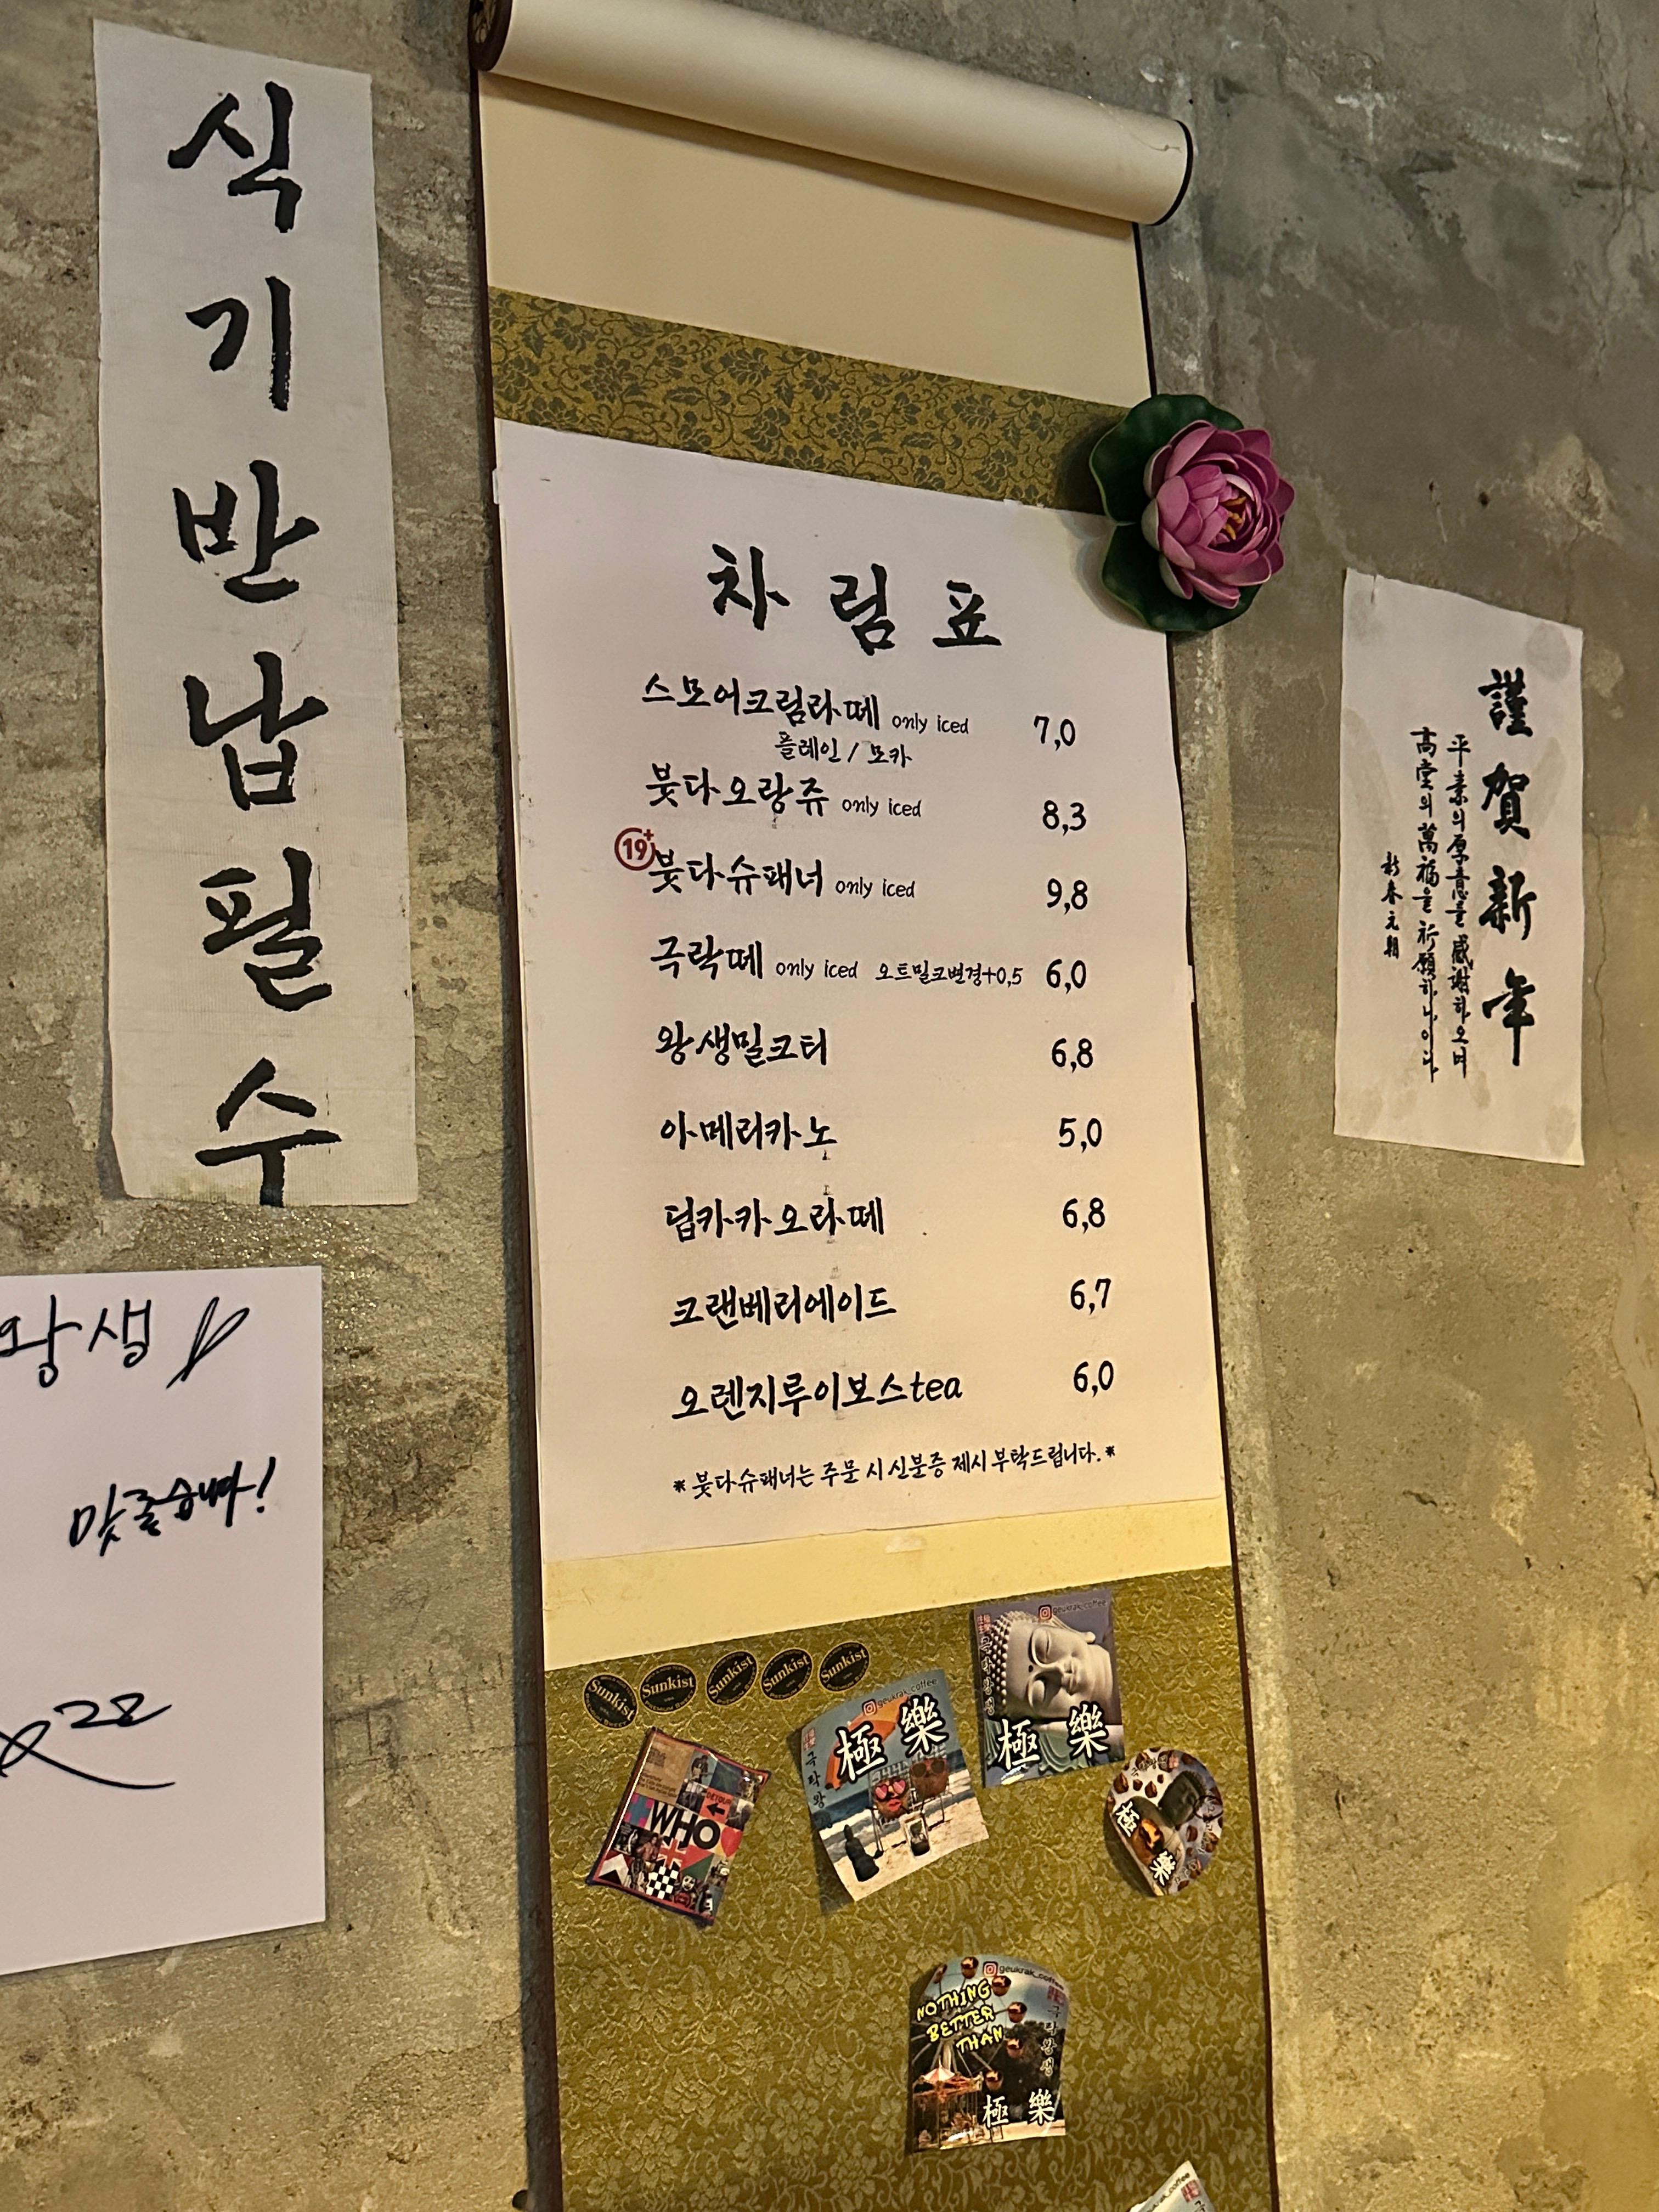 식기반납필수
차림표
스모어크림라떼 only iced 7,0
플레인 / 모카
붓다오랑쥬 only iced 8,3
19+ 붓다슈패너 only iced 9,8
극락떼 only iced 오트밀크변경+0,5 6,0
왕생밀크티 6,8
아메리카노 5,0
딥카카오라떼 6,8
크랜베리에이드 6,7
오렌지루이보스tea 6,0
* 붓다슈패너는 주문 시 신분증 제시 부탁드립니다. *
謹賀新年
平素의 厚意를 感謝하오며
高堂의 萬福을 祈願하나이다
新春 元朝
왕생
맛좋습니다!
Sunkist
Sunkist
Sunkist
Sunkist
Sunkist
WHO
geukrak_coffee
極樂
극락왕
geukrak_coffee
극락왕생
極樂
極樂
geukrak_coffee
NOTHING
BETTER
THAN
극락왕생
極樂